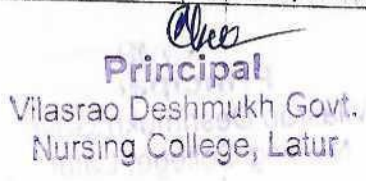 Principal
Vilasrao Deshmukh Govt.
Nursing College, Latur